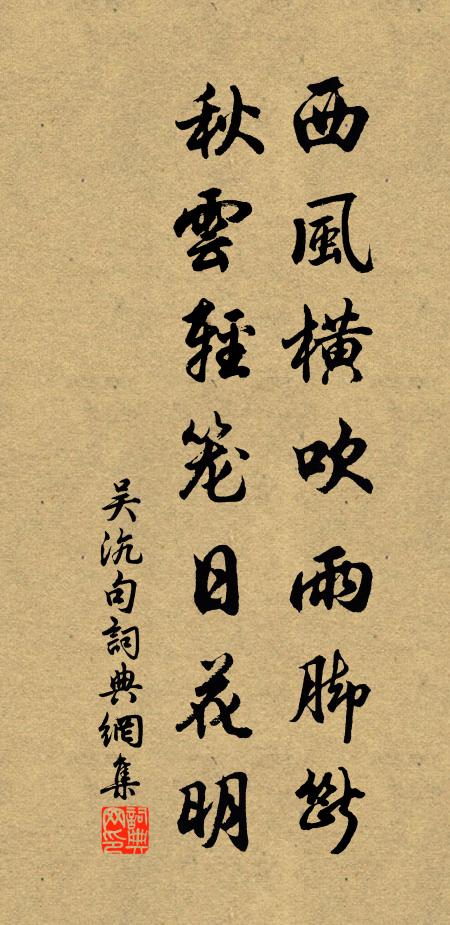 西風橫吹雨脚斷
秋雲輕笼日花明
吴沆句詞典網集
詞典网印